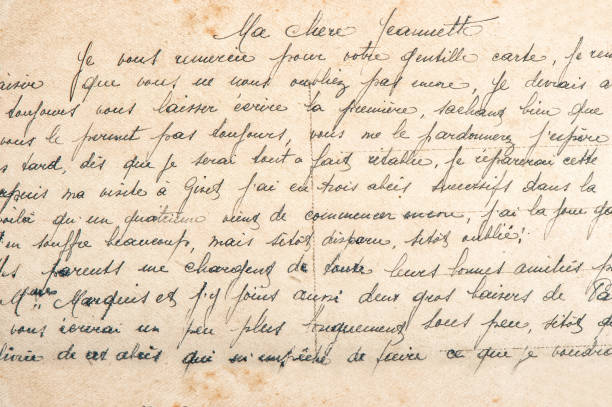 Ma chère Jeannette
Je vous remercie pour votre gentille carte, je rem
aisir que vous ne nous oubliez pas encore, Je devrais a
toujours vous laisser écrire la première, sachant bien que
vous le permet pas toujours, vous me le pardonnerez j'espère
s tard, dès que je serai tout à fait rétablie, je réparerai cette
epuis ma visite à Givet j'ai eu trois abcès successifs dans la
voilà qu'un quatrième vient de commencer encore, j'ai la joue ga
j'en souffre beaucoup, mais sitôt disparu, sitôt oublié!
parents me chargent de toute leurs bonnes amitiés p
Marquis et j'y joins aussi deux gros baisers de
vous écrirai un peu plus longuement sous peu, sitôt d
livrée de cet abcès qui m'empêche de faire ce que je voudra